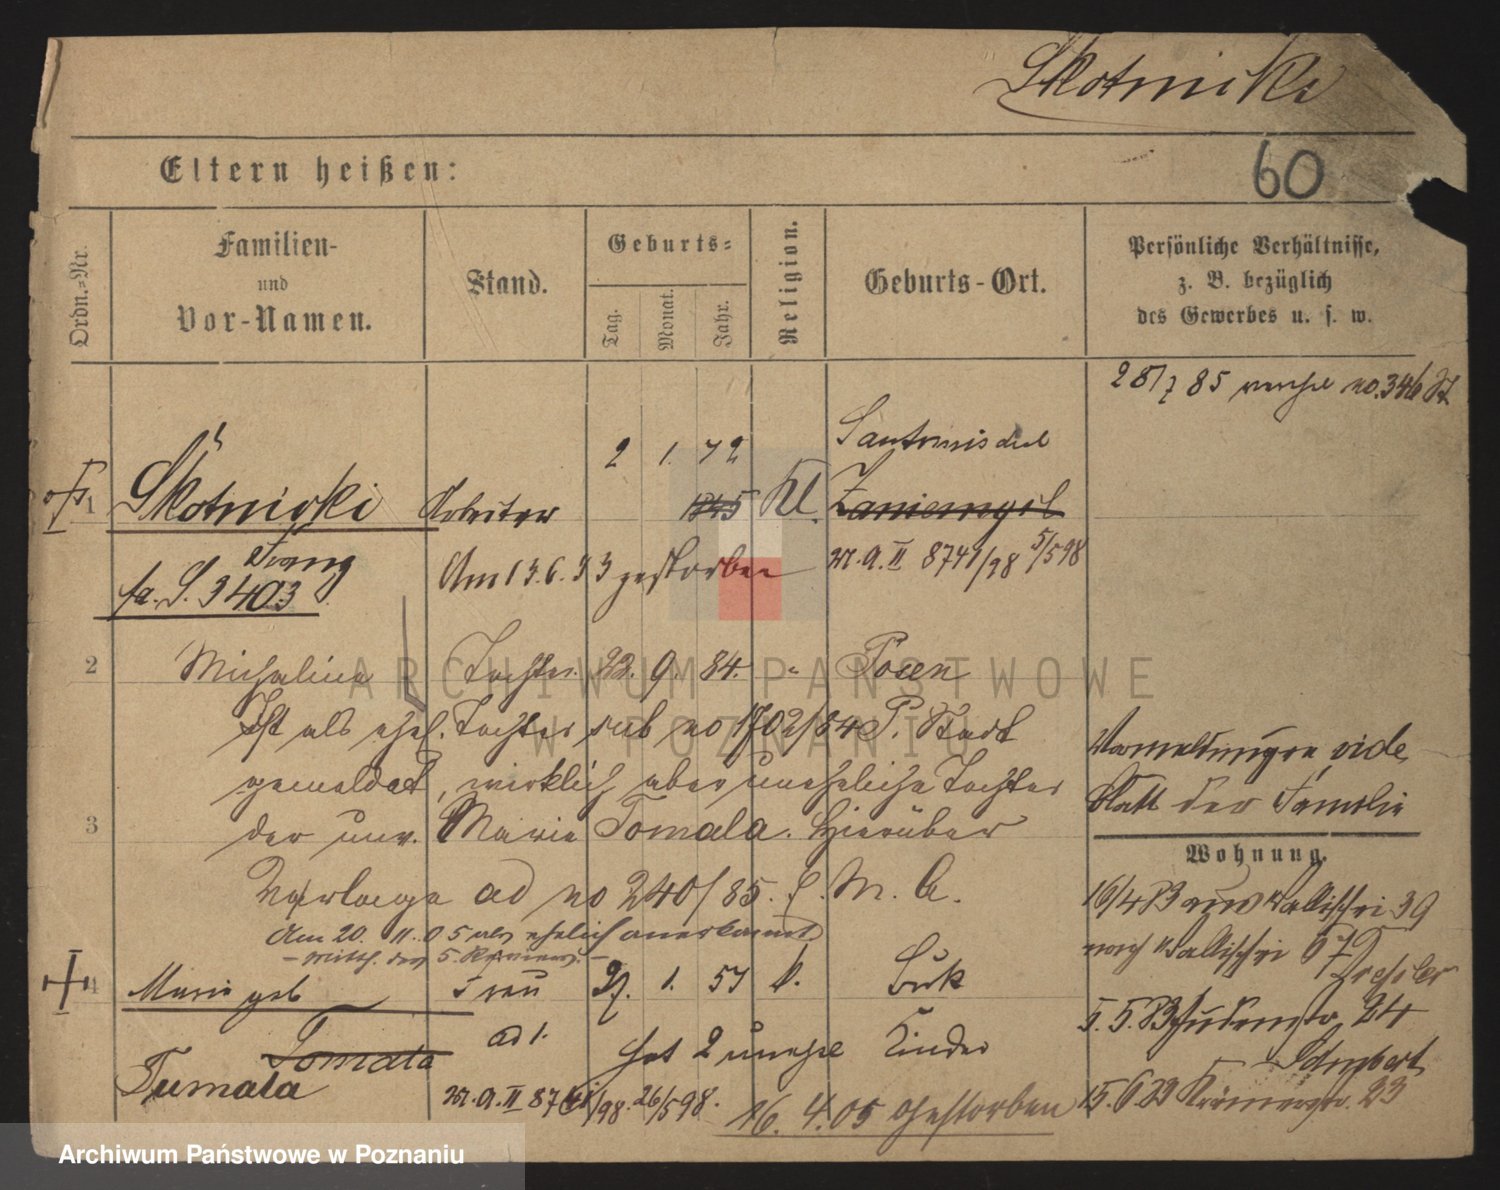 Skotnicki
60
Eltern heißen:
Ordn.=Nr.
Familien-
und
Vor-Namen.
Stand.
Geburts=
Tag.
Monat.
Jahr.
Religion.
Geburts-Ort.
Persönliche Verhältnisse,
z. B. bezüglich
des Gewerbes u. s. w.
28/7 85 no. 346
2 1. 72 Santomischel
1 Skotnicki Arbeiter 1845 Kl. Zaniemysl
Franz Am 13.6.33 gestorben M.A. II 8741/98 5/5 98
fa. S. 3403
2 Michalina Tochter 22. 9. 84. " Posen
Ist als ehel. Tochter sub no 1702/84 P. Stadt
gemeldet, wirklich aber uneheliche Tochter
3 der unv. Marie Tomala. Hierüber
Vorlage ad no 240/85. M. A.
Am 20. 11. 05 als ehelich anerkannt
- Mitth. des 5. Reviers. -
Vermeldungen vide
Blatt der Familie
Wohnung.
4 Marie geb Frau 27. 1. 57 k. Buk
Tomala ad 1. hat 2 unehel Kinder
Tumala M.A. II 8741/98. 26/5 98. 16. 4. 05 Gestorben
16/4 83 Wallischei 39
noch Wallischei 67
Dressler
5. 5. 83 Judenstr. 24
Schubert
15. 6 23 Krämerstr. 23
ARCHIWUM PAŃSTWOWE
W POZNANIU
Archiwum Państwowe w Poznaniu